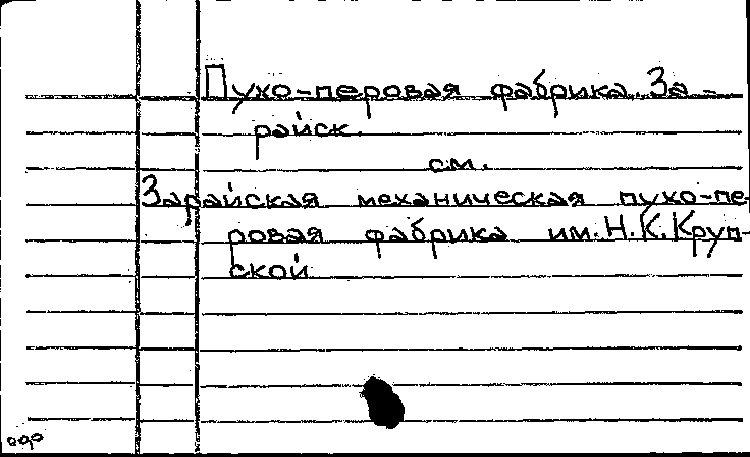 Пухо-перовая фабрика. За-
райск.
см.
Зарайская механическая пухо-пе-
ровая фабрика им. Н. К. Круп-
ской